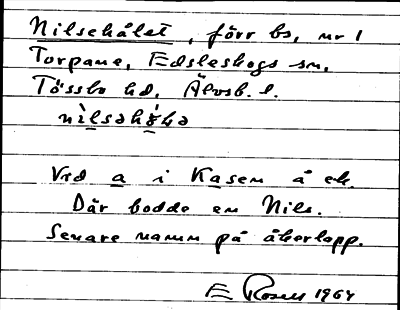 Nilsekålet, förr bs, nr 1
Torpane, Edsleskogs sn,
Tössbo hd, Älvsb. l.
Vid a i Kasen å ek.
Där bodde en Nils.
Senare namn på åkerlapp.
E Rosell 1964